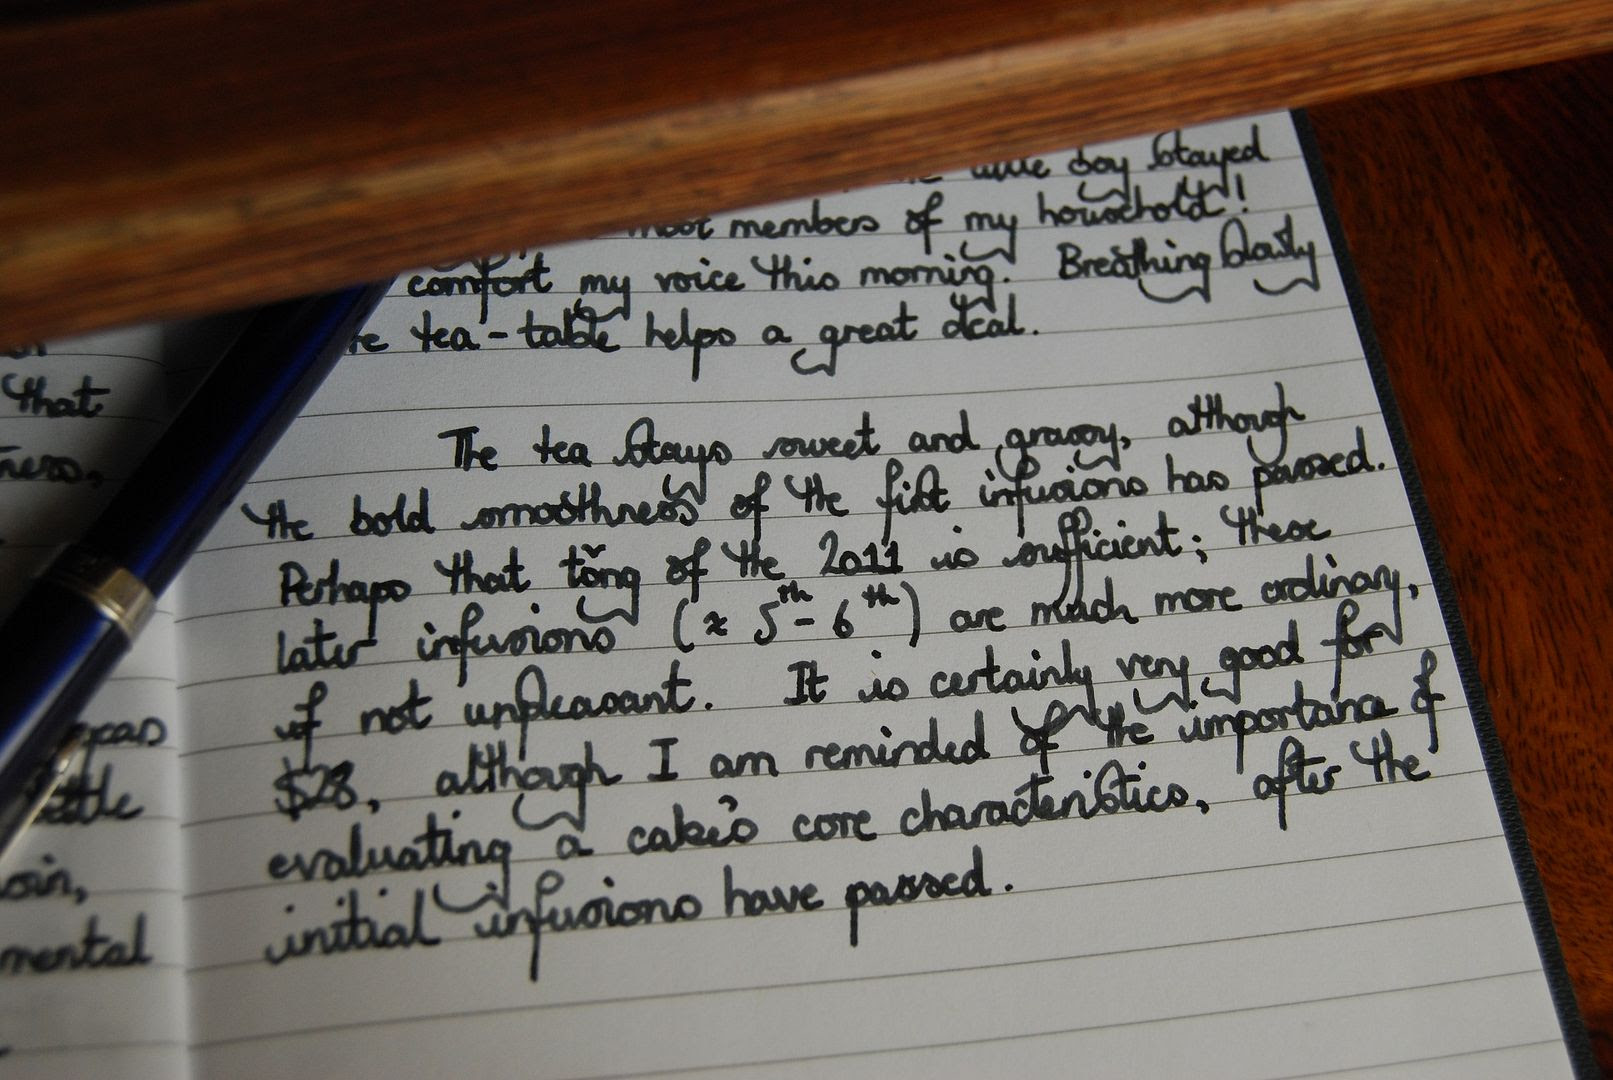 boy stayed
members of my household!
comfort my voice this morning. Breathing slowly
tea-table helps a great deal.
The tea stays sweet and grassy, although
the bold smoothness of the first infusions has passed.
Perhaps that tǒng of the 2011 is sufficient; these
later infusions (≈ 5th-6th) are much more ordinary,
if not unpleasant. It is certainly very good for
$28, although I am reminded of the importance of
evaluating a cake's core characteristics, after the
initial infusions have passed.
that
mental